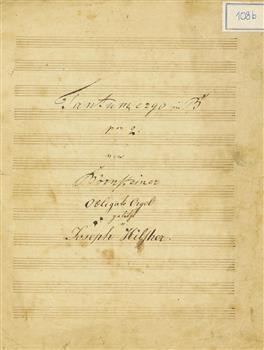 108b
Tantum ergo in B
per 2.
von
Börnsteiner
Obligate Orgel
Joseph Hilscher.